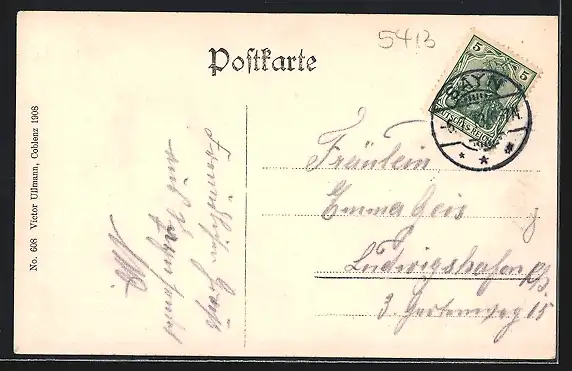 5413
Postkarte
5 5
SAYN
DEUTSCHES REICH
No. 608 Victor Ullmann, Coblenz 1908
Freundlichen Gruß
aus
Fräulein
Emma Geis
Ludwigshafen
3. Gartenweg 15